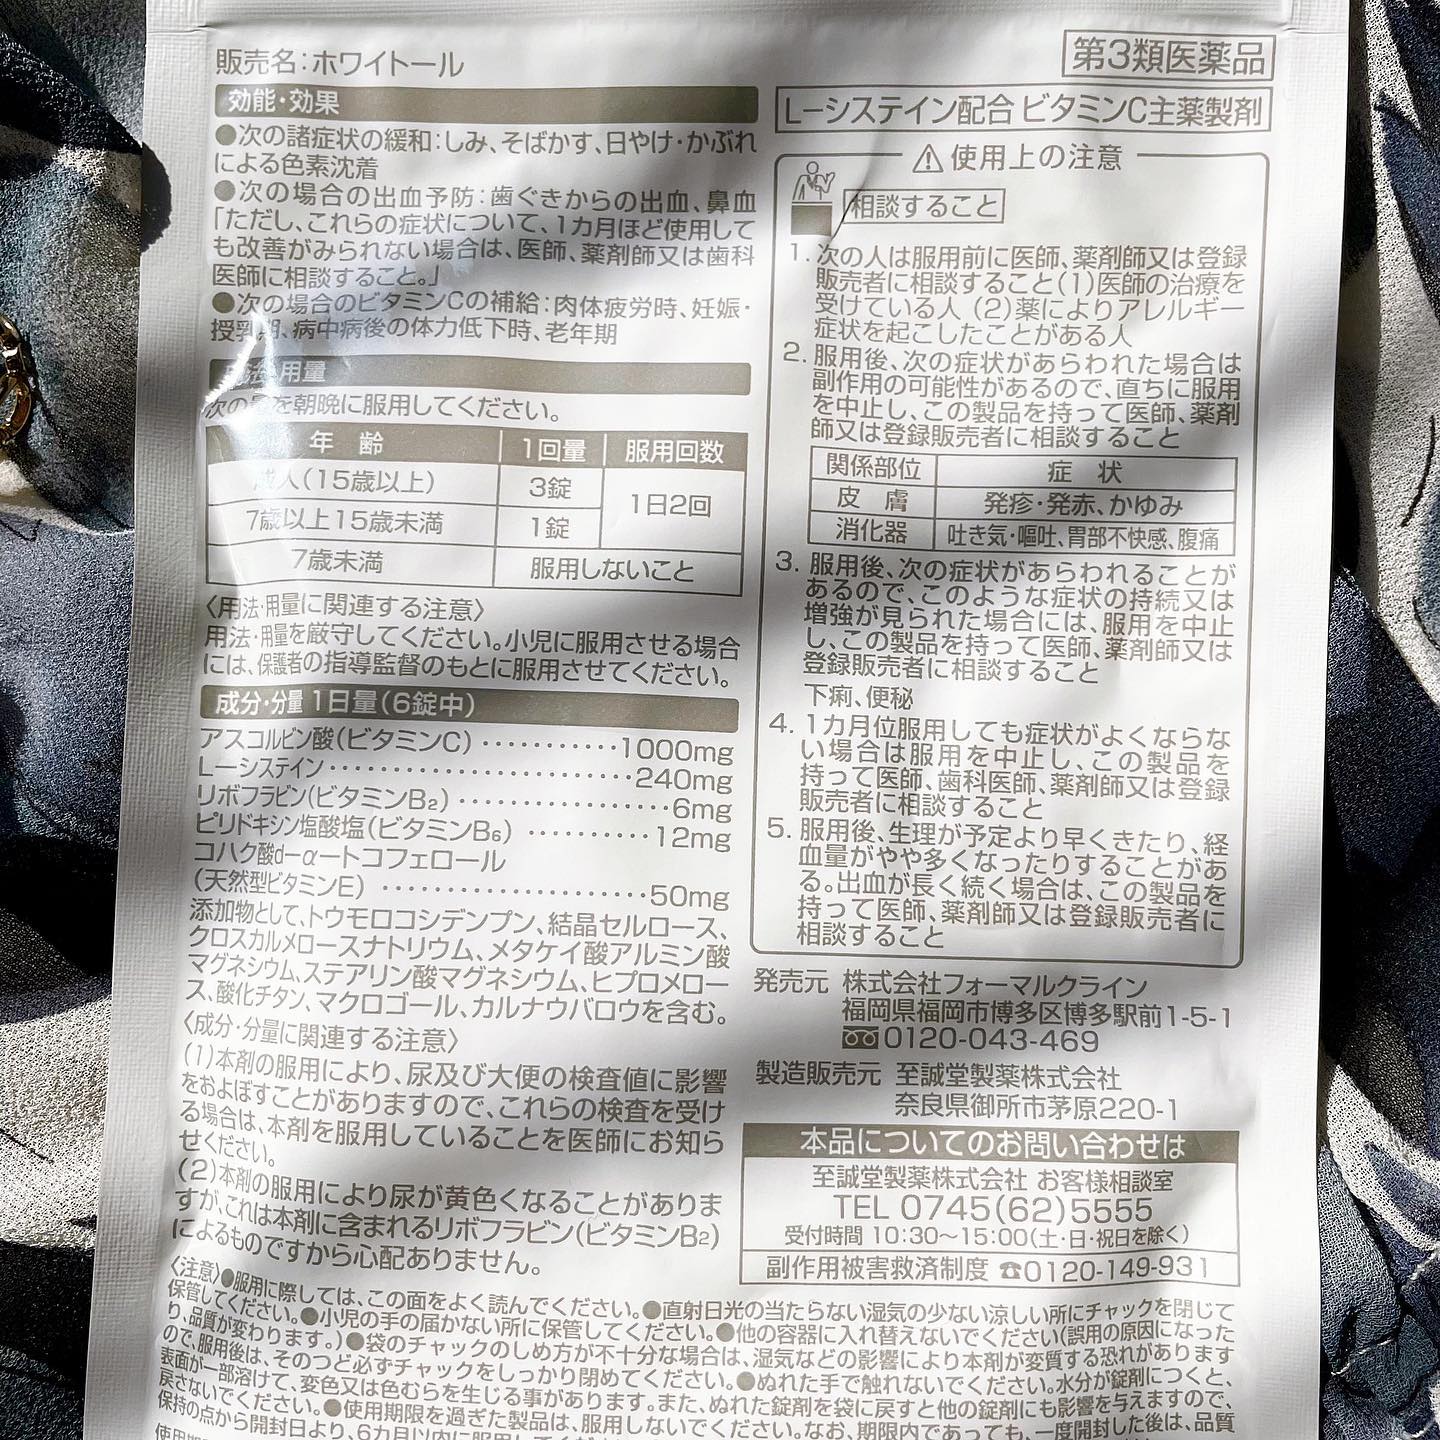 販売名:ホワイトール
効能・効果
●次の諸症状の緩和:しみ、そばかす、日やけ・かぶれ
による色素沈着
●次の場合の出血予防:歯ぐきからの出血、鼻血
「ただし、これらの症状について、1カ月ほど使用して
も改善がみられない場合は、医師、薬剤師又は歯科
医師に相談すること。」
●次の場合のビタミンCの補給:肉体疲労時、妊娠・
授乳期、病中病後の体力低下時、老年期
用法・用量
次の量を朝晩に服用してください。
年 齢 1回量 服用回数
成人(15歳以上) 3錠 1日2回
7歳以上15歳未満 1錠
7歳未満 服用しないこと
〈用法・用量に関連する注意〉
用法・用量を厳守してください。小児に服用させる場合
には、保護者の指導監督のもとに服用させてください。
成分・分量 1日量(6錠中)
アスコルビン酸(ビタミンC)・・・・・・・・・・・1000mg
L-システイン・・・・・・・・・・・・・・・・・・・・・・・240mg
リボフラビン(ビタミンB2)・・・・・・・・・・・・・・・・6mg
ピリドキシン塩酸塩(ビタミンB6)・・・・・・・・・・12mg
コハク酸d-α-トコフェロール
(天然型ビタミンE)・・・・・・・・・・・・・・・・・・・・50mg
添加物として、トウモロコシデンプン、結晶セルロース、
クロスカルメロースナトリウム、メタケイ酸アルミン酸
マグネシウム、ステアリン酸マグネシウム、ヒプロメロー
ス、酸化チタン、マクロゴール、カルナウバロウを含む。
〈成分・分量に関連する注意〉
(1)本剤の服用により、尿及び大便の検査値に影響
をおよぼすことがありますので、これらの検査を受け
る場合は、本剤を服用していることを医師にお知ら
せください。
(2)本剤の服用により尿が黄色くなることがありま
すが、これは本剤に含まれるリボフラビン(ビタミンB2)
によるものですから心配ありません。
第3類医薬品
L-システイン配合 ビタミンC主薬製剤
⚠使用上の注意
相談すること
1. 次の人は服用前に医師、薬剤師又は登録
販売者に相談すること(1)医師の治療を
受けている人 (2)薬によりアレルギー
症状を起こしたことがある人
2. 服用後、次の症状があらわれた場合は
副作用の可能性があるので、直ちに服用
を中止し、この製品を持って医師、薬剤
師又は登録販売者に相談すること
関係部位 症 状
皮 膚 発疹・発赤、かゆみ
消化器 吐き気・嘔吐、胃部不快感、腹痛
3. 服用後、次の症状があらわれることが
あるので、このような症状の持続又は
増強が見られた場合には、服用を中止
し、この製品を持って医師、薬剤師又は
登録販売者に相談すること
下痢、便秘
4. 1カ月位服用しても症状がよくならな
い場合は服用を中止し、この製品を
持って医師、歯科医師、薬剤師又は登録
販売者に相談すること
5. 服用後、生理が予定より早くきたり、経
血量がやや多くなったりすることがあ
る。出血が長く続く場合は、この製品を
持って医師、薬剤師又は登録販売者に
相談すること
発売元 株式会社フォーマルクライン
福岡県福岡市博多区博多駅前1-5-1
0120-043-469
製造販売元 至誠堂製薬株式会社
奈良県御所市茅原220-1
本品についてのお問い合わせは
至誠堂製薬株式会社 お客様相談室
TEL 0745(62)5555
受付時間 10:30〜15:00(土・日・祝日を除く)
副作用被害救済制度 ☎0120-149-931
〈注意〉●服用に際しては、この面をよく読んでください。●直射日光の当たらない湿気の少ない涼しい所にチャックを閉じて
保管してください。●小児の手の届かない所に保管してください。●他の容器に入れ替えないでください(誤用の原因になった
り、品質が変わります。)●袋のチャックのしめ方が不十分な場合は、湿気などの影響により本剤が変質する恐れがあります
ので、服用後は、そのつど必ずチャックをしっかり閉めてください。●ぬれた手で触れないでください。水分が錠剤につくと、
表面が一部溶けて、変色又は色むらを生じる事があります。また、ぬれた錠剤を袋に戻すと他の錠剤にも影響を与えますので、
戻さないでください。●使用期限を過ぎた製品は、服用しないでください。なお、期限内であっても、一度開封した後は、品質
保持の点から開封日より、6カ月以内に服用してください。